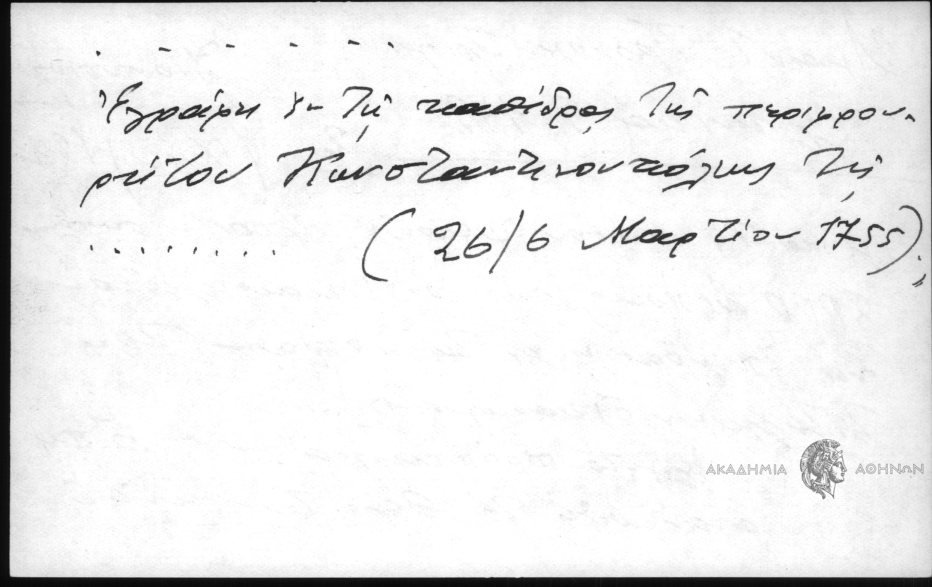 . - - - - .
Ἐγράφη ἐν τῇ καθέδρᾳ τῆς περιφρου-
ρήτου Κωνσταντινουπόλεως τῇ
......... (26/6 Μαρτίου 1755).»
ΑΚΑΔΗΜΙΑ ΑΘΗΝΩΝ